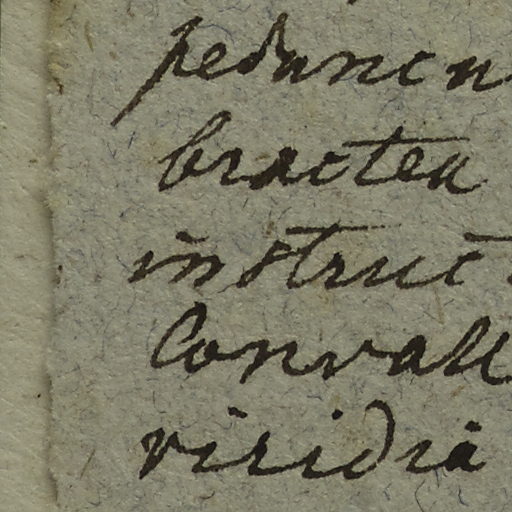 peduncu
bractea
instruct
Convall
viridia